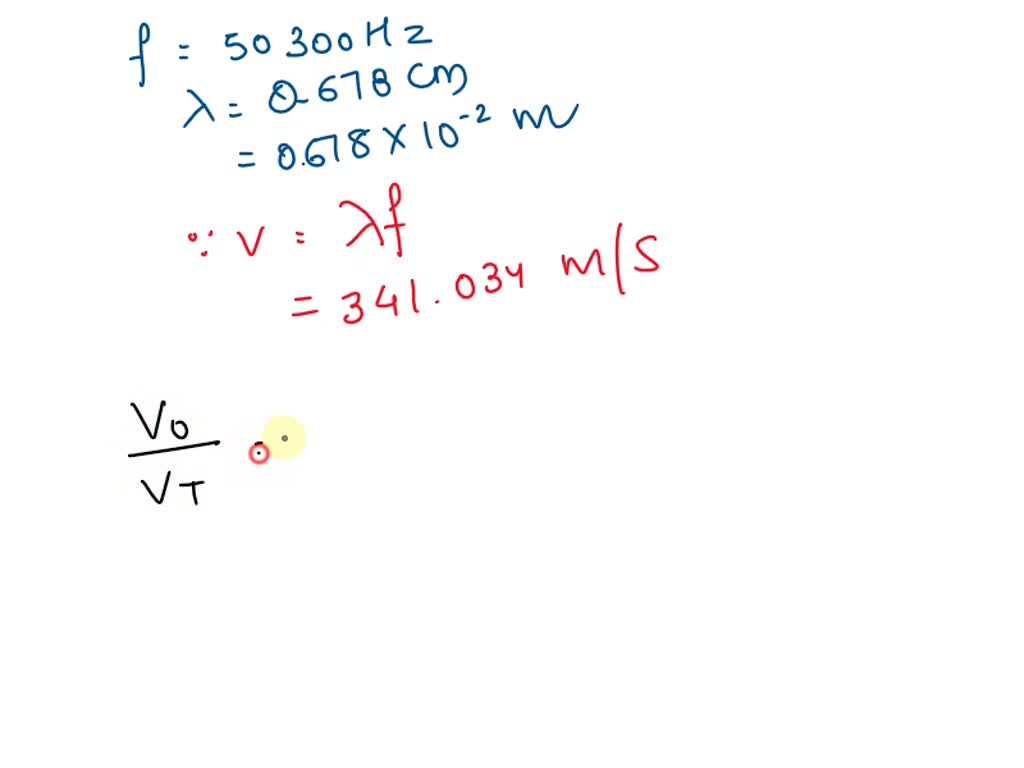 f = 50300Hz
λ = 0.678 cm
= 0.678 × 10⁻² m
∵ v = λf
= 341.034 m/s
V₀
VT